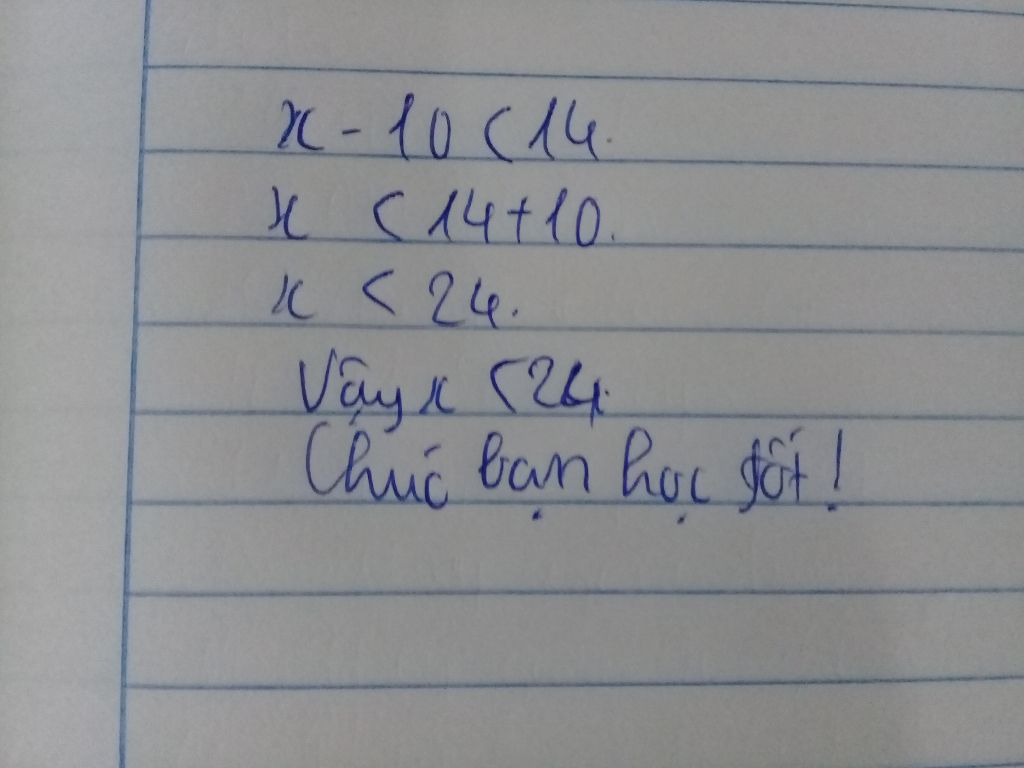 x - 10 < 14.
x < 14 + 10.
x < 24.
Vậy x < 24.
Chúc bạn học tốt!